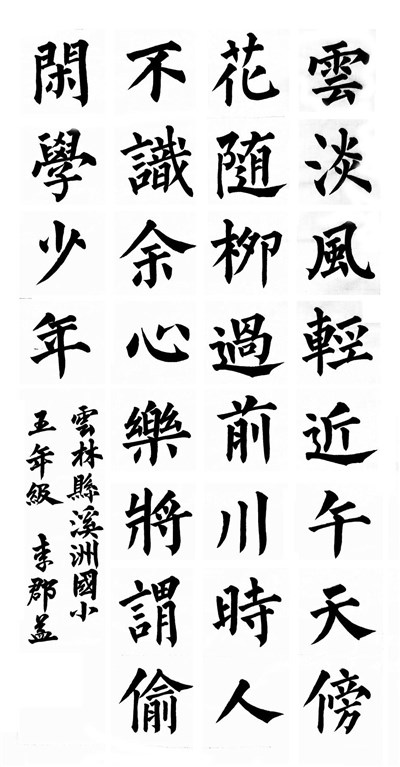 雲淡風輕近午天傍
花隨柳過前川時人
不識余心樂將謂偷
閑學少年
雲林縣溪洲國小
五年級 李郡益